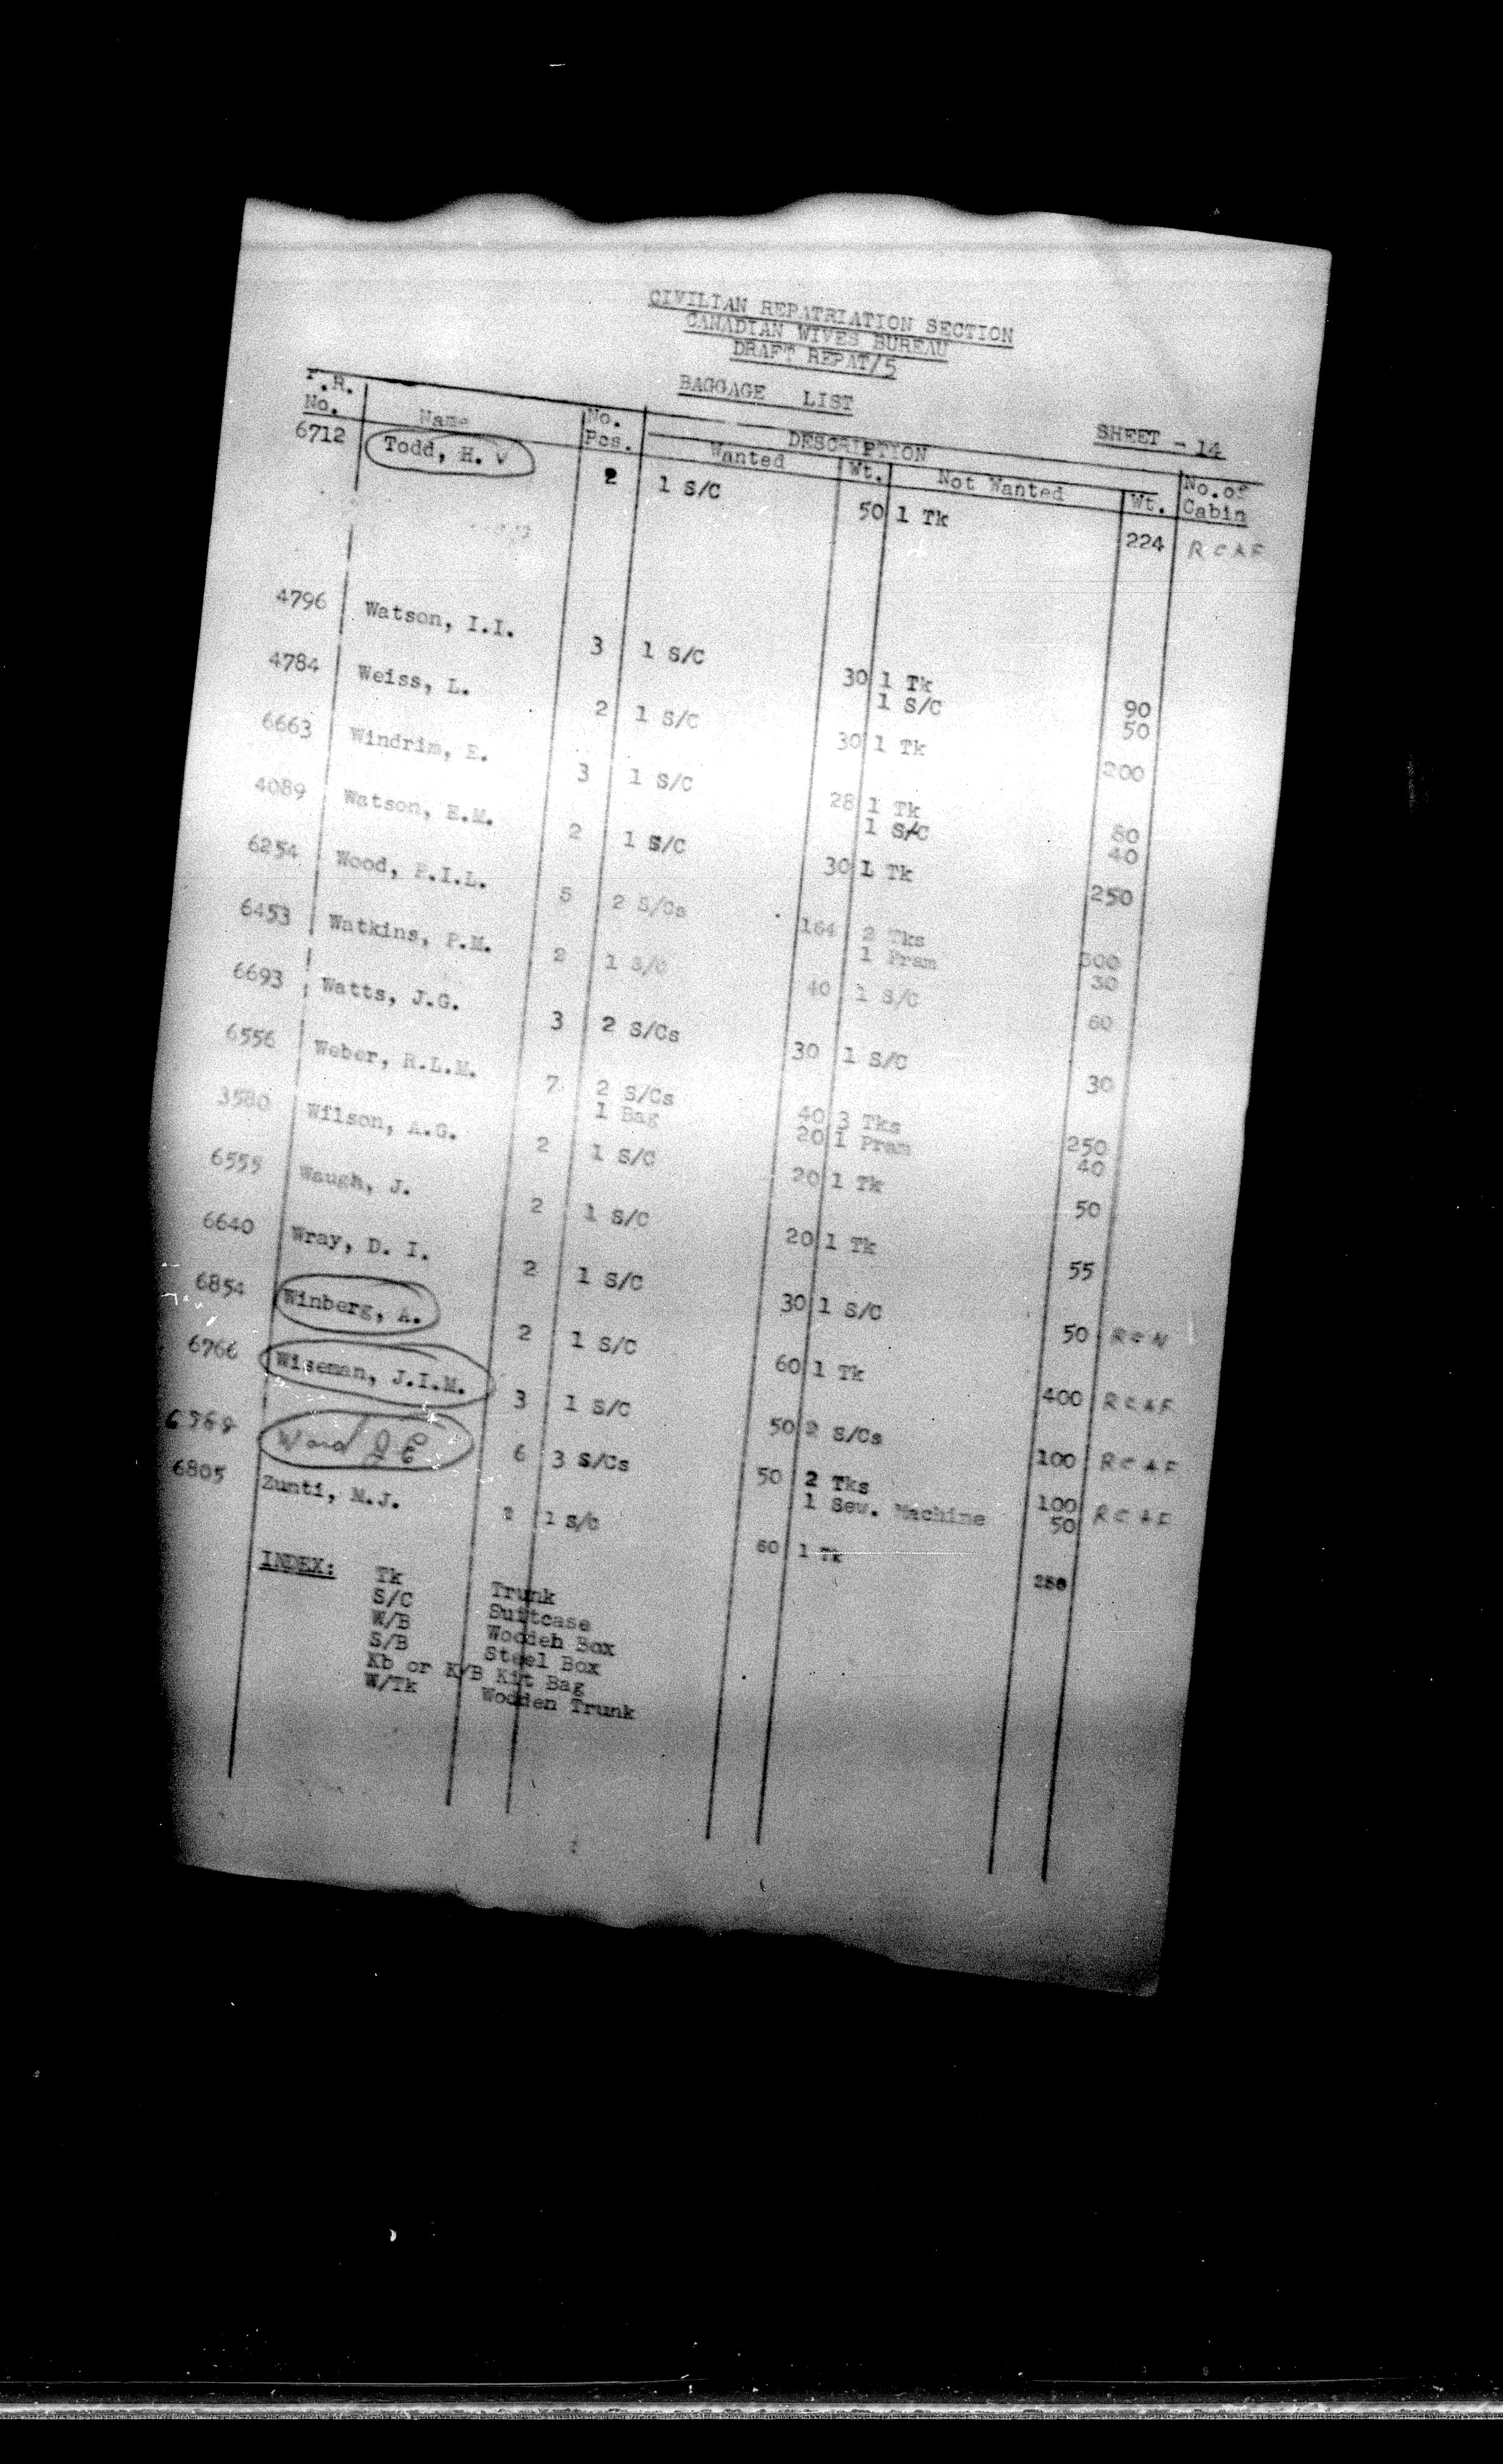 CIVILIAN REPATRIATION SECTION
CANADIAN WIVES BUREAU
DRAFT REPAT/5
BAGGAGE LIST
SHEET - 14
F.R. No. Name No. Pcs. DESCRIPTION No. of Cabin
Wanted Wt. Not Wanted Wt.
6712 Todd, H. V 2 1 S/C 50 1 Tk 224 RCAF
4796 Watson, I.I. 3 1 S/C 30 1 Tk 90
1 S/C 50
4784 Weiss, L. 2 1 S/C 30 1 Tk 200
6663 Windrim, E. 3 1 S/C 28 1 Tk 80
1 S/C 40
4089 Watson, E.M. 2 1 S/C 30 1 Tk 250
6254 Wood, P.I.L. 5 2 S/Cs 164 2 Tks 300
1 Pram 30
6453 Watkins, P.M. 2 1 S/C 40 1 S/C 60
6693 Watts, J.G. 3 2 S/Cs 30 1 S/C 30
6556 Weber, R.L.M. 7 2 S/Cs 40 3 Tks 250
1 Bag 20 1 Pram 40
3580 Wilson, A.G. 2 1 S/C 20 1 Tk 50
6555 Waugh, J. 2 1 S/C 20 1 Tk 55
6640 Wray, D. I. 2 1 S/C 30 1 S/C 50 RCN
6854 Winberg, A. 2 1 S/C 60 1 Tk 400 RCAF
6766 Wiseman, J.I.M. 3 1 S/C 50 2 S/Cs 100 RCAF
6 3 S/Cs 50 2 Tks 100 RCAF
1 Sew. Machine 50
6805 Zunti, M.J. 2 1 S/C 60 1 Tk
INDEX: Tk Trunk
S/C Suitcase
W/B Wooden Box
S/B Steel Box
Kb or K/B Kit Bag
W/Tk Wooden Trunk